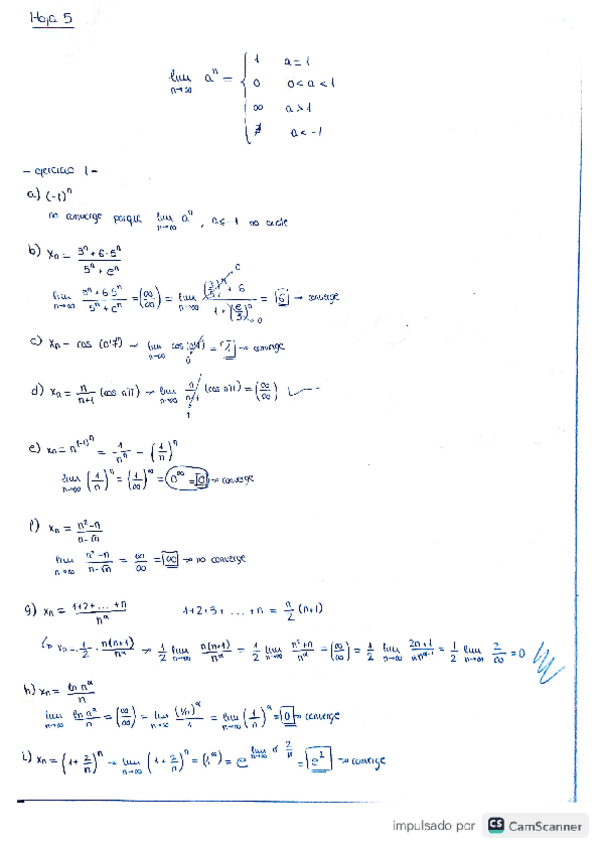 Hoja 5
lim n→∞ aⁿ = { 1 a = 1
0 0 < a < 1
∞ a > 1
∄ a < -1
- ejercicio 1 -
a) (-1)ⁿ
no converge porque lim n→∞ aⁿ, a ≤ -1 no existe
b) xₙ = (3ⁿ + 6·5ⁿ)/(5ⁿ + eⁿ)
lim n→∞ (3ⁿ + 6·5ⁿ)/(5ⁿ + eⁿ) = (∞/∞) = lim n→∞ ((3/5)ⁿ + 6)/(1 + (e/5)ⁿ) = 6 → converge
c) xₙ = cos (0'7ⁿ) → lim n→∞ cos (0'7ⁿ) = 1 → converge
d) xₙ = n/(n+1) (cos nπ) → lim n→∞ n/(n+1) (cos nπ) = (∞/∞)
e) xₙ = n^(-1)ⁿ = 1/nⁿ = (1/n)ⁿ
lim n→∞ (1/n)ⁿ = (1/∞)^∞ = 0^∞ = 0 → converge
f) xₙ = (n² - n)/(n - √n)
lim n→∞ (n² - n)/(n - √n) = ∞/∞ = ∞ → no converge
g) xₙ = (1+2+...+n)/n^α 1+2+3+...+n = n/2 (n+1)
xₙ = 1/2 · n(n+1)/n^α → 1/2 lim n→∞ n(n+1)/n^α = 1/2 lim n→∞ (n²+n)/n^α = (∞/∞) = 1/2 lim n→∞ (2n+1)/αn^(α-1) = 1/2 lim n→∞ 2/∞ = 0
h) xₙ = ln n^α / n
lim n→∞ ln n^α / n = (∞/∞) = lim n→∞ (1/n)^α / 1 = lim n→∞ (1/n)^α = 0 → converge
i) xₙ = (1 + 2/n)ⁿ → lim n→∞ (1 + 2/n)ⁿ = (1^∞) = e^(lim n→∞ n · 2/n) = e² → converge
impulsado por CS CamScanner